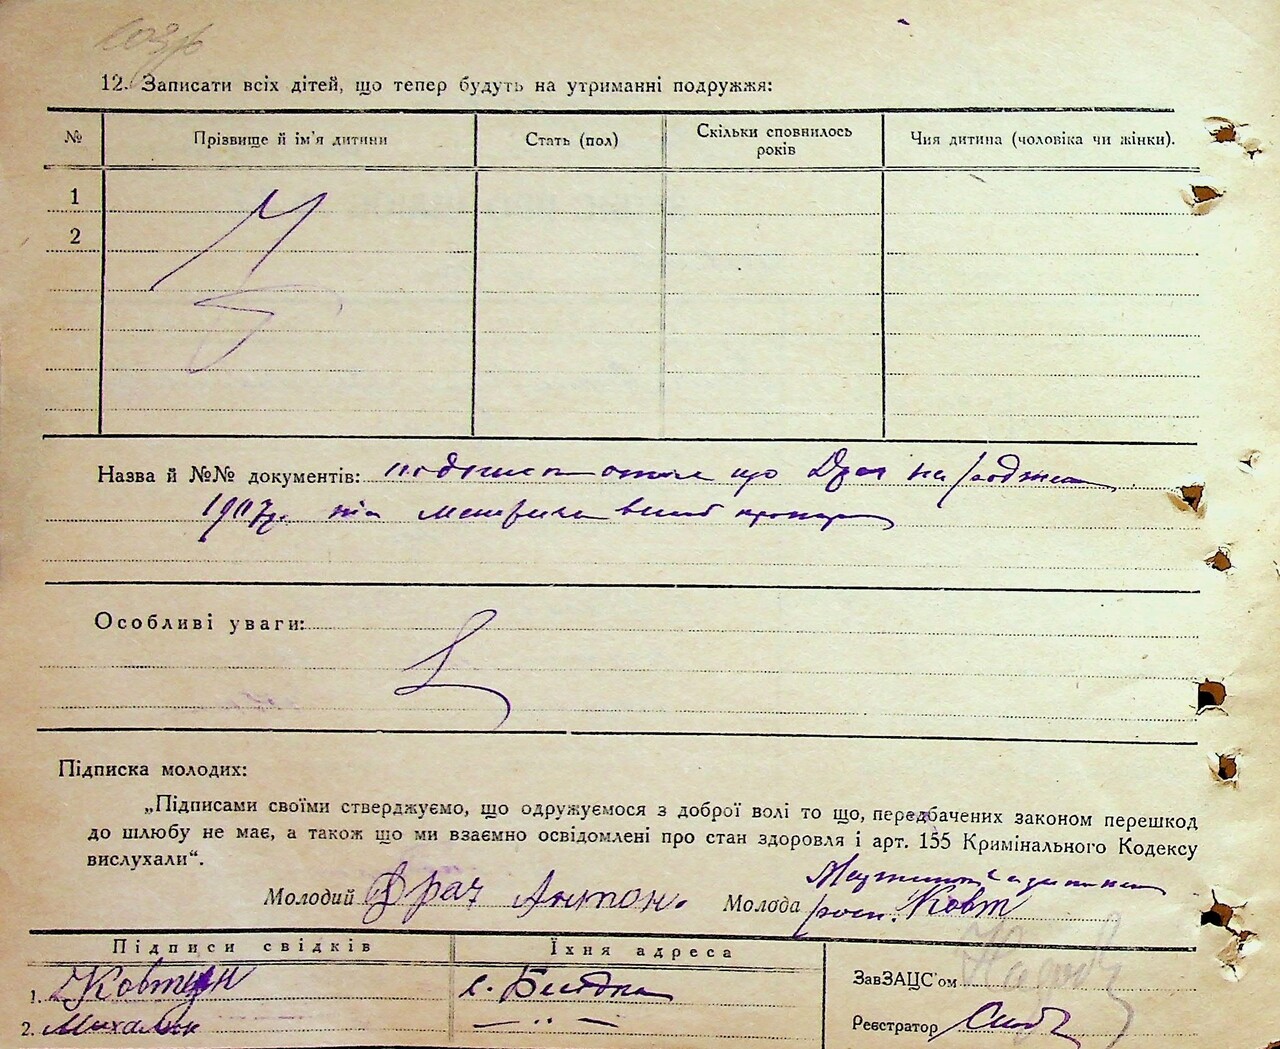 12. Записати всіх дітей, що тепер будуть на утриманні подружжя:
№ Прізвище й ім'я дитини Стать (пол) Скільки сповнилось років Чия дитина (чоловіка чи жінки).
1
2
Назва й №№ документів: що Драч на
1907р. та
Особливі уваги:
Підписка молодих:
„Підписами своїми стверджуємо, що одружуємося з доброї волі то що, передбачених законом перешкод
до шлюбу не має, а також що ми взаємно освідомлені про стан здоровля і арт. 155 Кримінального Кодексу
вислухали“.
Молодий Драч Антон. Молода Ковт
Підписи свідків Їхня адреса
1. Ковтун с.
ЗавЗАЦС'ом
2. Михальк — ·· —
Реєстратор